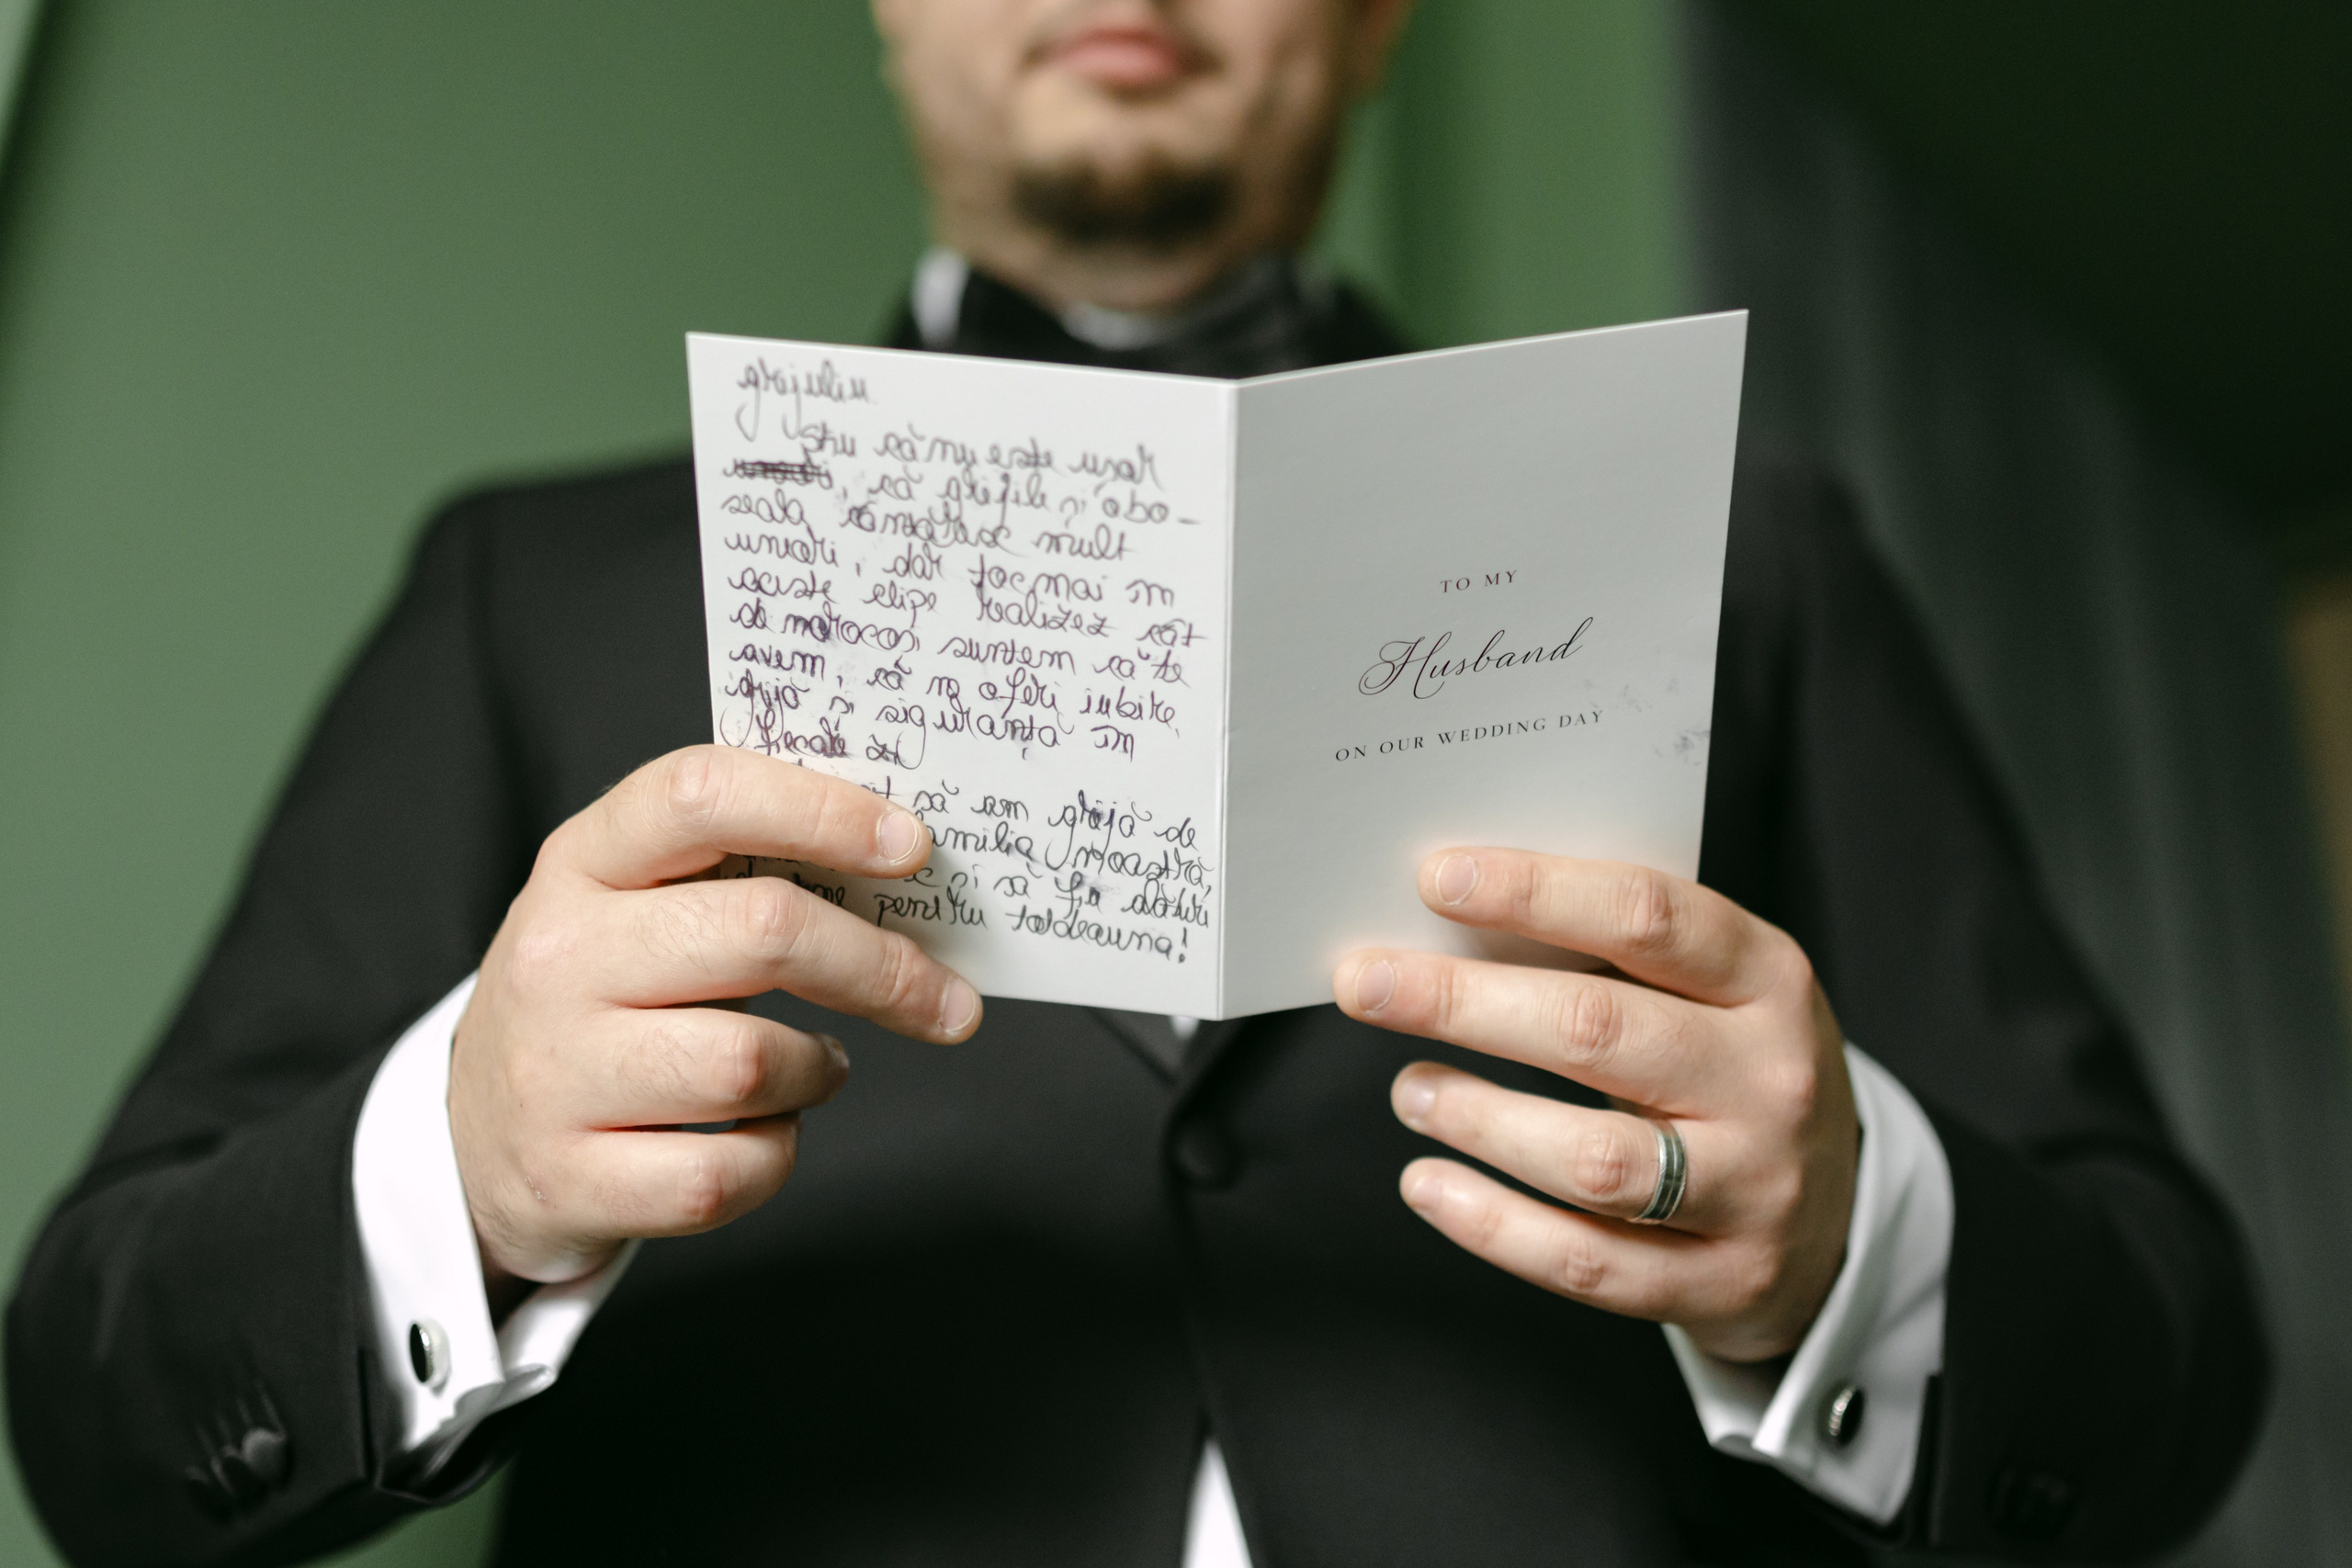 grijuliu.
Știu că nu este ușor
, că grijile și obo-
seala cântăresc mult
uneori, dar tocmai în
aceste clipe realizez cât
de norocoși suntem că te
avem, că ne oferi iubire,
grijă și siguranță în
fiecare zi
să am grijă de
familia noastră,
și să fiu alături
de tine pentru totdeauna!
TO MY
Husband
ON OUR WEDDING DAY